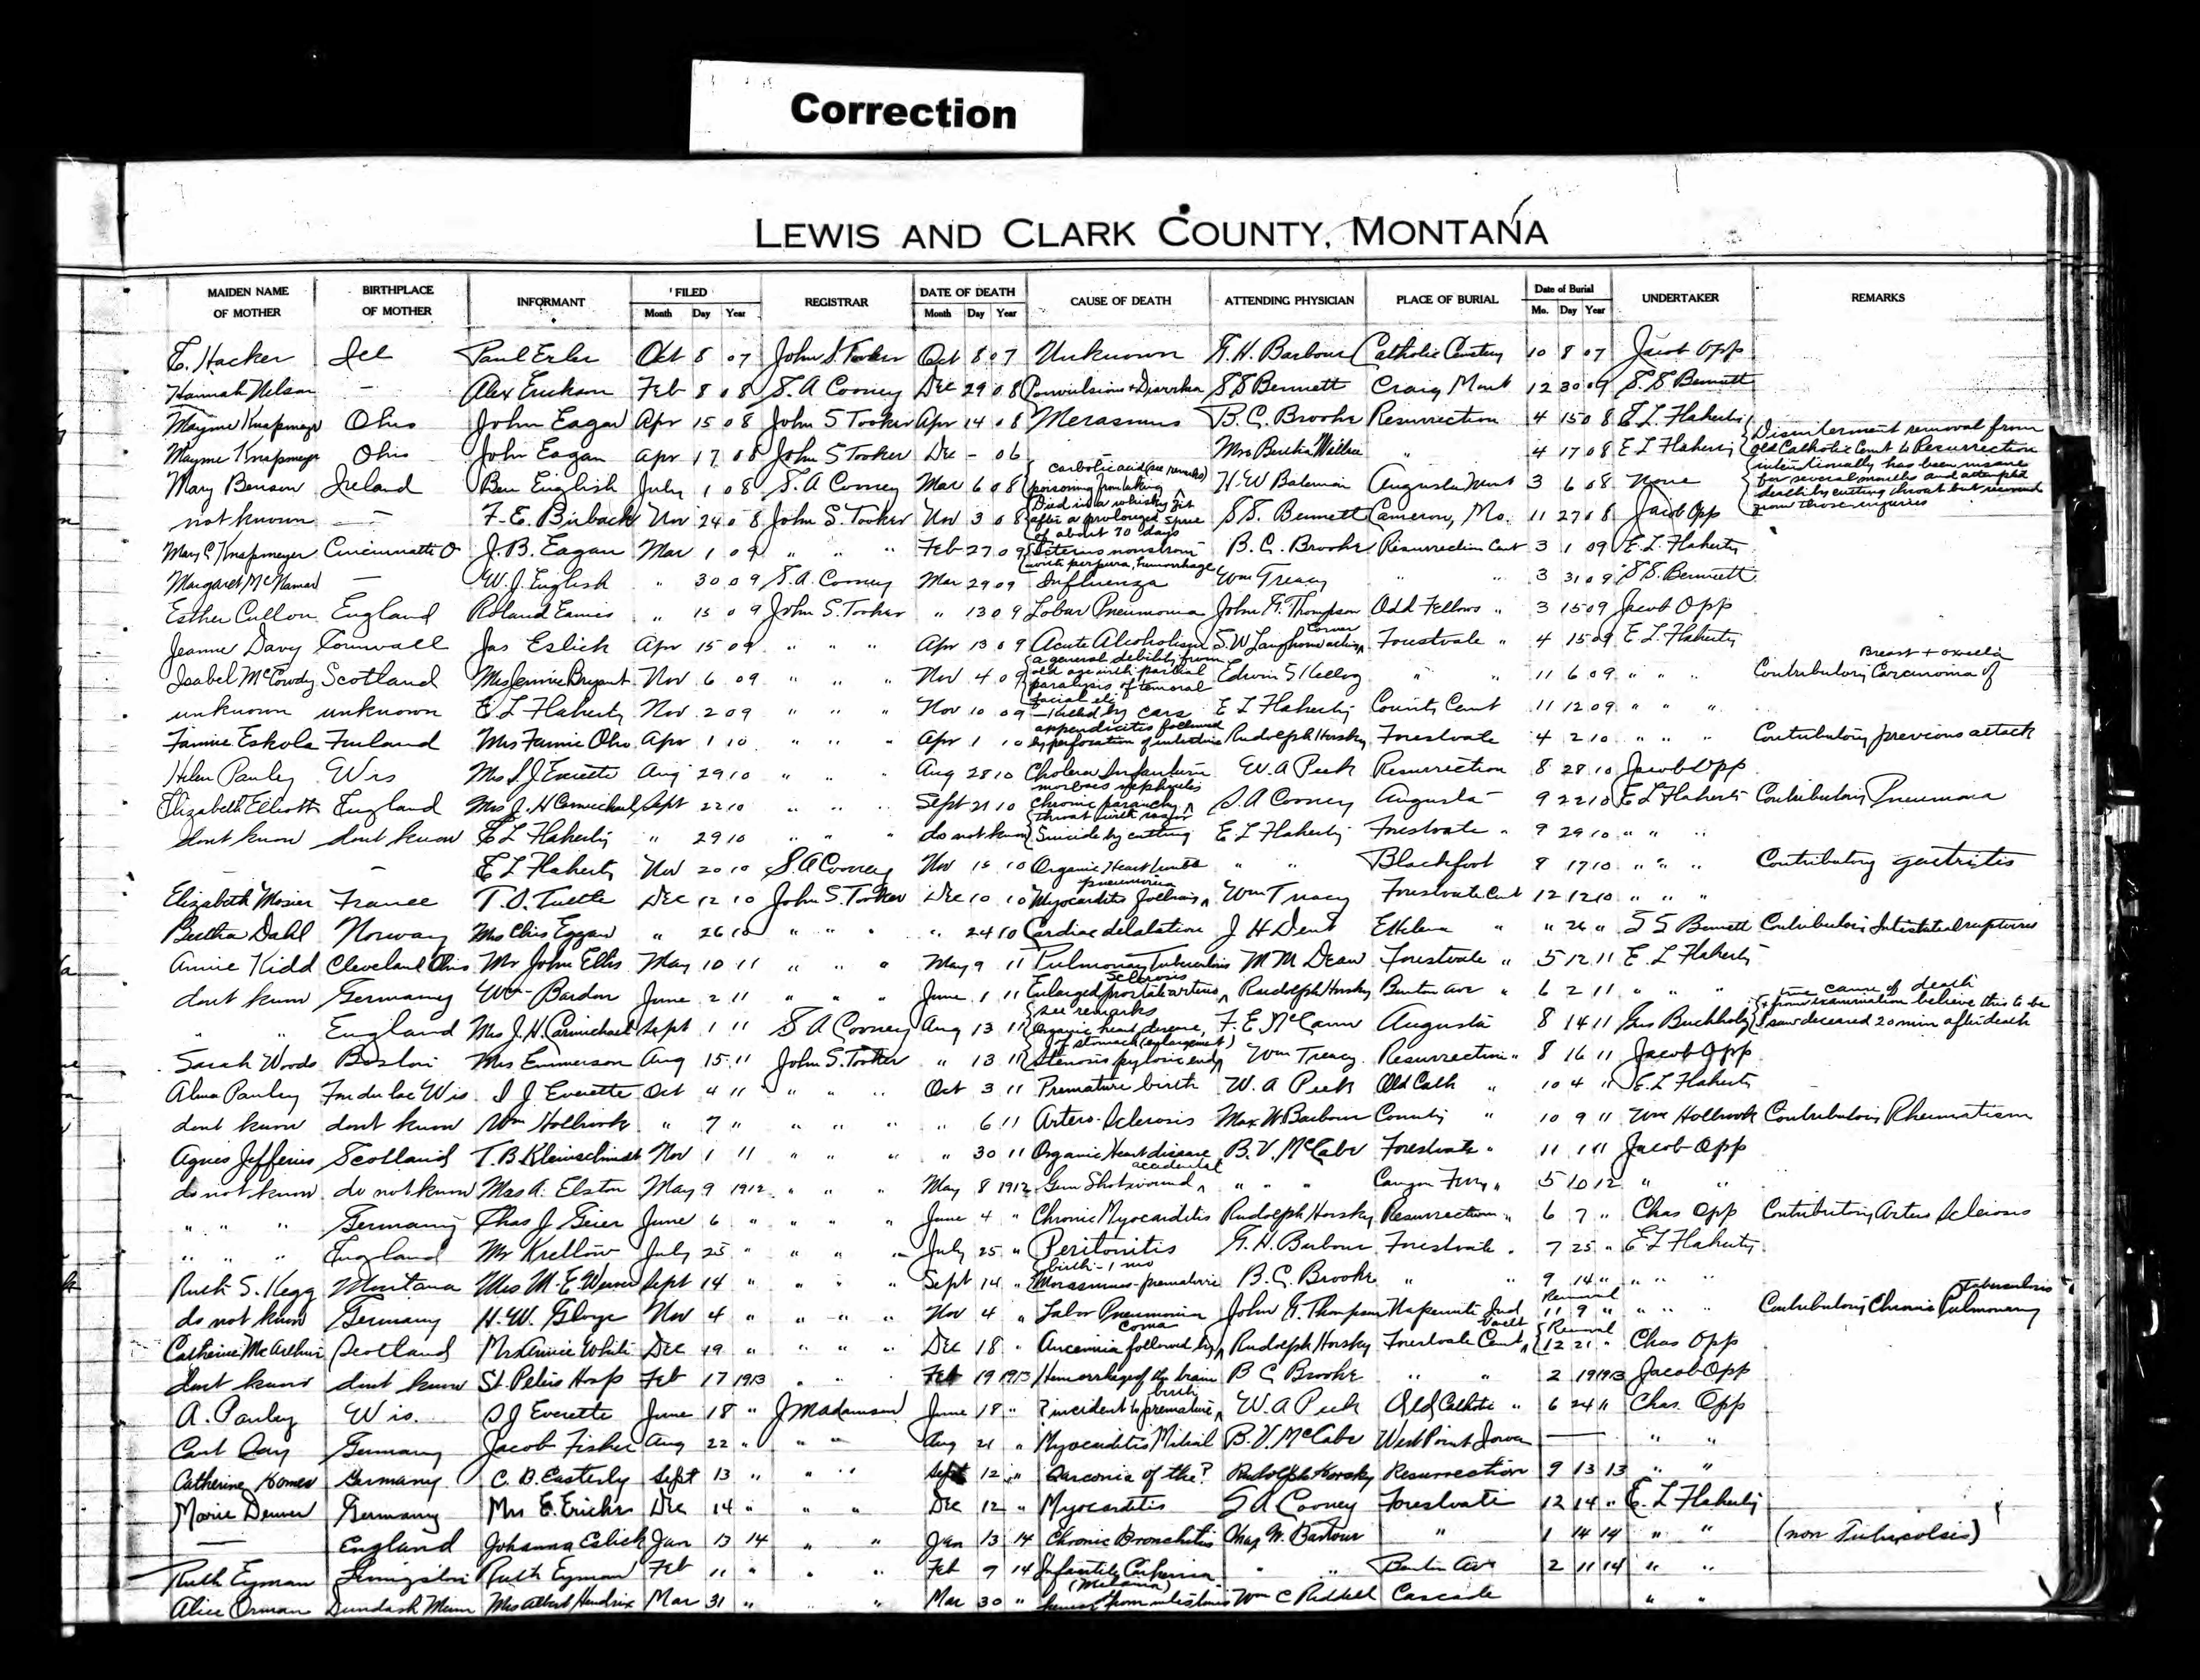 Correction
LEWIS AND CLARK COUNTY, MONTANA
MAIDEN NAME OF MOTHER BIRTHPLACE OF MOTHER INFORMANT FILED Month Day Year REGISTRAR DATE OF DEATH Month Day Year CAUSE OF DEATH ATTENDING PHYSICIAN PLACE OF BURIAL Date of Burial Mo. Day Year UNDERTAKER REMARKS
E. Hacker Ill Paul Erler Oct 8 07 John S. Tooker Oct 8 07 Unknown G. H. Barbour Catholic Cemetery 10 8 07 Jacob Opp
Hannah Nelson — Alex Erickson Feb 8 08 S. A Cooney Dec 29 08 Convulsions + Diarrhea S S Bennett Craig Mont 12 30 09 S. S Bennett
Mayme Knapmeyer Ohio John Eagan Apr 15 08 John S Tooker Apr 14 08 Merasmus B. C. Brooke Resurrection 4 15 08 E. L. Flaherty
Mayme Knapmeyer Ohio John Eagan Apr 17 08 John S Tooker Dec - 06 - Mrs Bertha 4 17 08 E L Flaherty Disinterment removal from old Catholic Cemt to Resurrection
Mary Benson Ireland Ben English July 1 08 S. A Cooney Mar 6 08 poisoning from taking carbolic acid (see remarks) H. W Bateman Augusta Mont 3 6 08 None intentionally has been insane for several months and attempted death by cutting throat but from those
not known — F. E. Birback Nov 24 08 John S. Tooker Nov 3 08 Died in a whiskey fit after a prolonged spree of about 70 days S S. Bennett Cameron, Mo. 11 27 08 Jacob Opp
Mary C Knapmeyer Cincinnatti O J. B. Eagan Mar 1 09 " " " Feb 27 09 with perpura, hemorrhage B. C. Brooke Resurrection Cemt 3 1 09 E. L. Flaherty
Margaret McNamar — W. J. English " 30 09 S. A. Cooney Mar 29 09 Influenza Wm Treacy " " 3 31 09 S S. Bennett
Esther Cullon England Roland Eames " 15 09 John S. Tooker " 13 09 Lobar Pneumonia John G. Thompson Odd Fellows " 3 15 09 Jacob Opp
Jeanne Davy Cornwall Jas Eslick Apr 15 09 " " " Apr 13 09 Acute Alcoholism S. W Langhorne acting Corner Forestvale " 4 15 09 E. L. Flaherty
Isabel McCowdy Scotland Mrs Jennie Bryant Nov 6 09 " " " Nov 4 09 a general debility from old age with partial paralysis of facial etc Edwin S Kellog " " 11 6 09 " " " Contributory Carcinoma of Breast +
unknown unknown E L Flaherty Nov. 2 09 " " " Nov 10 09 — Killed by cars E L Flaherty County Cemt 11 12 09 " " "
Fannie Eskola Finland Mrs Fannie Oho Apr 1 10 " " " Apr 1 10 appendicitis followed by perforation of intestine Rudolph Horsky Forestvale 4 2 10 " " " Contributory previous attack
Helen Pauley Wis Mrs S. J Everette Aug 29 10 " " " Aug 28 10 Cholera Infantum W. A Peek Resurrection 8 28 10 Jacob Opp
Elizabeth Elliott England Mrs J. H Carmichael Sept 22 10 " " " Sept 21 10 Chronic S. A Cooney Augusta 9 22 10 E L Flaherty Contributory Pneumonia
dont know dont know E L Flaherty " 29 10 " " " do not know Suicide by cutting throat with razor E L Flaherty Forestvale " 9 29 10 " " "
— — E L Flaherty Nov 20 10 S. A Cooney Nov 15 10 Organic Heart " " Blackfoot 9 17 10 " " " Contributory gastritis
Elizabeth Mosier France T. O. Tuttle Dec 12 10 John S. Tooker Dec 10 10 Myocarditis following pneumonia Wm Treacy Forestvale Cemt 12 12 10 " " "
Bertha Dahl Norway Mrs Chris Eggan " 26 10 " " " " 24 10 Cardiac delalation J H Dent E Helena " " 26 " S S Bennett Contributory
Annie Kidd Cleveland Ohio Mr John Ellis May 10 11 " " " May 9 11 Pulmonary Tuberculosis M M Dean Forestvale " 5 12 11 E. L Flaherty
dont know Germany Wm Bardon June 2 11 " " " June 1 11 Enlarged prostate arterio Sclerosis Rudolph Horsky Benton Ave " 6 2 11 " " "
" " England Mrs J. H. Carmichael Sept 1 11 S A Cooney Aug 13 11 see remarks Organic heart desease, F. E. McCann Augusta 8 14 11 Gus Buchholz true cause of death from examination believe this to be I saw deceased 20 min after death
Sarah Woods Boston Mrs Emmerson Aug 15 11 John S. Tooker " 13 11 Stenosis pyloric end of stomach (enlargement) Wm Treacy Resurrection " 8 16 11 Jacob Opp
Alma Pauley Fon du lac Wis S J Everette Oct 4 11 " " " Oct 3 11 Premature birth W. A Peek Old Cath " 10 4 " E. L Flaherty
dont know dont know Wm Holbrook " 7 " " " " " 6 11 Artero-Sclerosis Max W Barbour County " 10 9 11 Wm Holbrook Contributory Rheumatism
Agnes Jefferies Scotland T. B. Kleinschmidt Nov 1 11 " " " " 30 11 Organic Heart disease B. V. McCabe Forestvale " 11 1 11 Jacob Opp
do not know do not know Mrs A. Elston May 9 1912 " " " May 8 1912 Gun Shot wound accidental " " " Canyon Ferry " 5 10 12 " "
" " " Germany Chas J Geier June 6 " " " " June 4 " Chronic Myocarditis Rudolph Horsky Resurrection " 6 7 " Chas Opp Contributory Arterio Sclerosis
" " " England Mr Krellow July 25 " " " " July 25 " Peritonitis G. H. Barbour Forestvale " 7 25 " E L Flaherty
Ruth S. Kegg Montana Mrs M. E. Weaver Sept 14 " " " " Sept 14 " Merasmus-premature birth-1 mo B. C. Brooke " " 9 14 " " " "
do not know Germany H. W. George Nov 4 " " " " Nov 4 " Lobar Pneumonia John G. Thompson Ind Removal 11 9 " " " " Contributory Chronic Pulmonary Tuberculosis
Catherine McArthur Scotland Mrs Annie White Dec 19 " " " " Dec 18 " Anaemia followed by coma Rudolph Horsky Forestvale Cemt Vault Removal 12 21 " Chas Opp
dont know dont know St. Peters Hosp Feb 17 1913 " " Feb 19 1913 Hemorrhage of the brain B C Brooke " " 2 19 1913 Jacob Opp
A. Pauley Wis. S J Everette June 18 " J M Adamson June 18 " ? incident to premature birth W. A Peek Old Catholic " 6 24 " Chas. Opp
Germany Jacob Fisher Aug 22 " " " Aug 21 " Myocarditis Mitral B. V. McCabe West Point Iowa — " "
Catherine Homer Germany C. D. Easterly Sept 13 " " " Sept 12 " Sarcoma of the? Rudolph Horsky Resurrection 9 13 13 " "
Marie Denver Germany Mrs E. Ericks Dec 14 " " " Dec 12 " Myocarditis S A Cooney Forestvale 12 14 " E. L Flaherty
— England Johanna Eslick Jan 13 14 " " Jan 13 14 Chronic Bronchitis Chas W. Barbour " 1 14 14 " " (non Tuberculosis)
Ruth Eyman Livingston Ruth Eyman Feb 11 " " " Feb 9 14 Infantile " " Benton Ave 2 11 14 " "
Alice Orman Dundash Minn Mrs Albert Hendrix Mar 31 " " " Mar 30 " (Melaena) from intestines Wm C Riddell Cascade " "